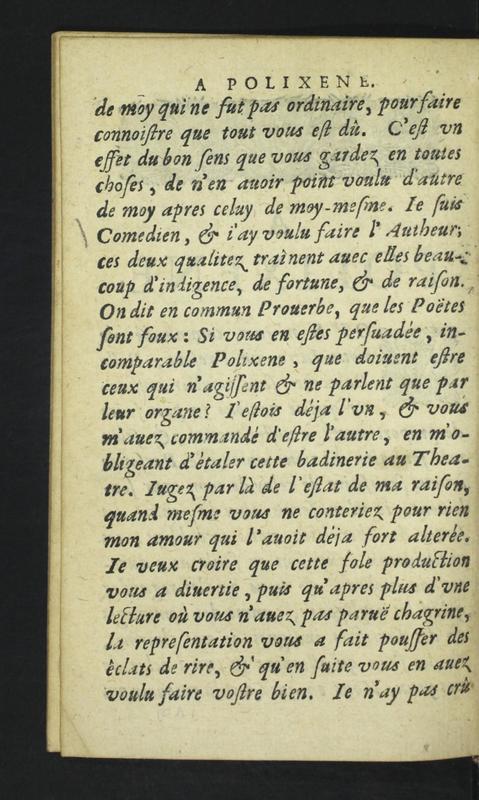 A POLIXENE.
de moy qui ne fut pas ordinaire, pour faire
connoiſtre que tout vous eſt dû. C'eſt vn
effet du bon ſens que vous gardez en toutes
choſes, de n'en auoir point voulu d'autre
de moy apres celuy de moy-meſme. Ie ſuis
Comedien, & i'ay voulu faire l'Autheur;
ces deux qualitez trainent auec elles beau-
coup d'indigence, de fortune, & de raiſon.
On dit en commun Prouerbe, que les Poëtes
ſont foux: Si vous en eſtes perſuadée, in-
comparable Polixene, que doiuent eſtre
ceux qui n'agiſſent & ne parlent que par
leur organe? I'eſtois déja l'vn, & vous
m'auez commandé d'eſtre l'autre, en m'o-
bligeant d'étaler cette badinerie au Thea-
tre. Iugez par là de l'eſtat de ma raiſon,
quand meſme vous ne conteriez pour rien
mon amour qui l'auoit déja fort alterée.
Ie veux croire que cette fole production
vous a diuertie, puis qu'apres plus d'vne
lecture où vous n'auez pas paruë chagrine,
la repreſentation vous a fait pouſſer des
èclats de rire, & qu'en ſuite vous en auez
voulu faire voſtre bien. Ie n'ay pas crû